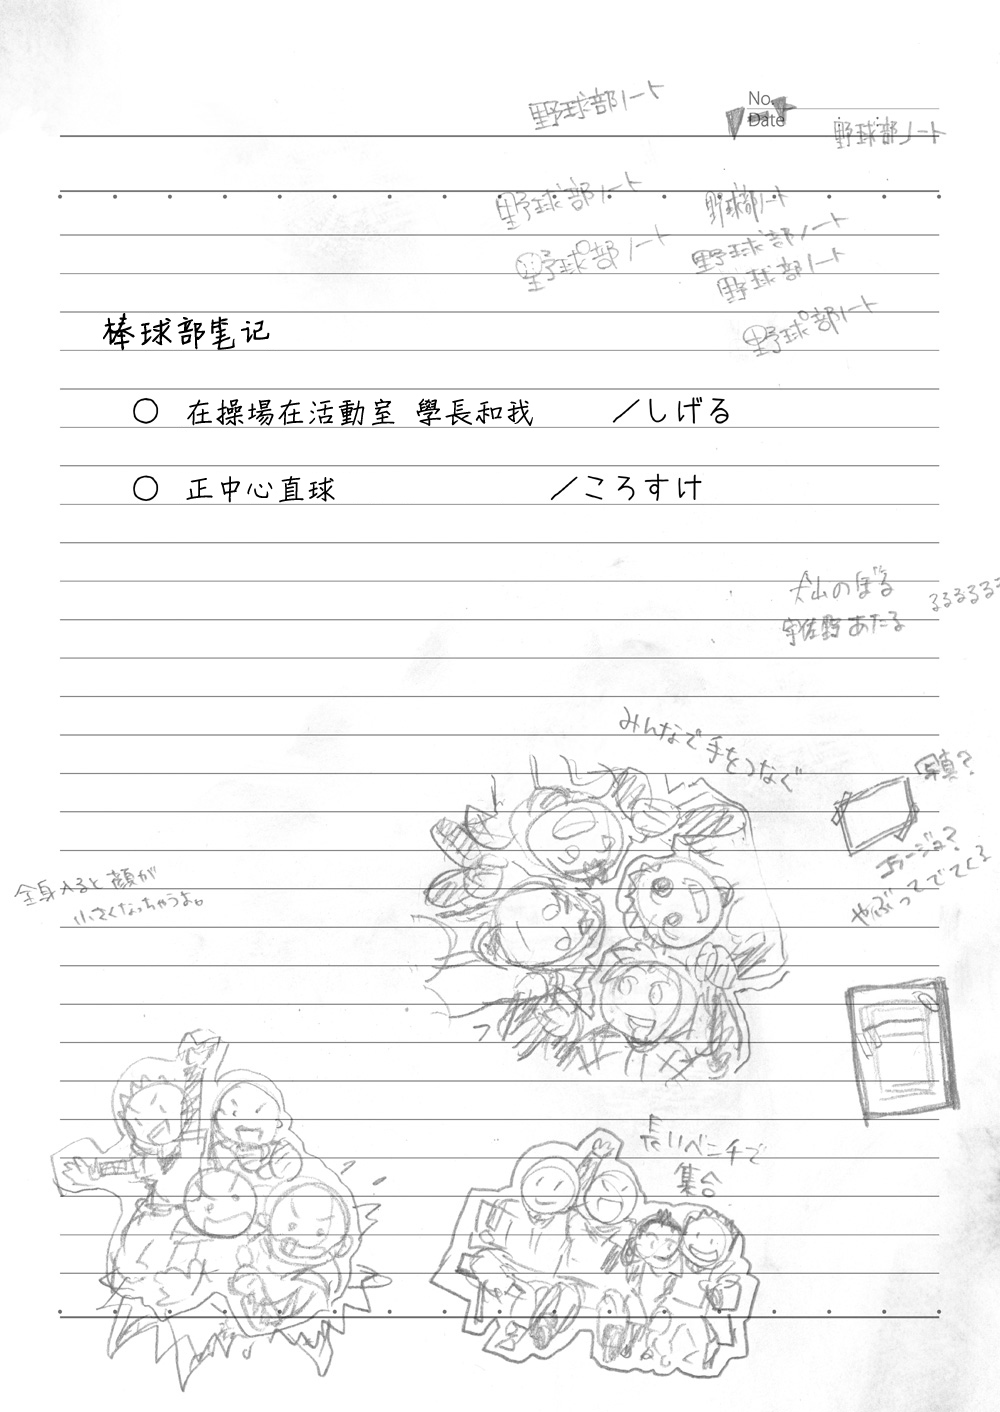 野球部ノート
No.
Date
野球部ノート
野球部ノート
野球部ノート
野球部ノート
野球部ノート
野球部ノート
野球部ノート
棒球部笔记
○ 在操場在活動室 學長和我 /しげる
○ 正中心直球 /ころすけ
犬山のぼる
るるるるる
宇佐野あたる
みんなで手をつなぐ
写真?
コラージュ?
やぶってでてくる
全身入ると顔が
小さくなっちゃうよ。
長いベンチで
集合